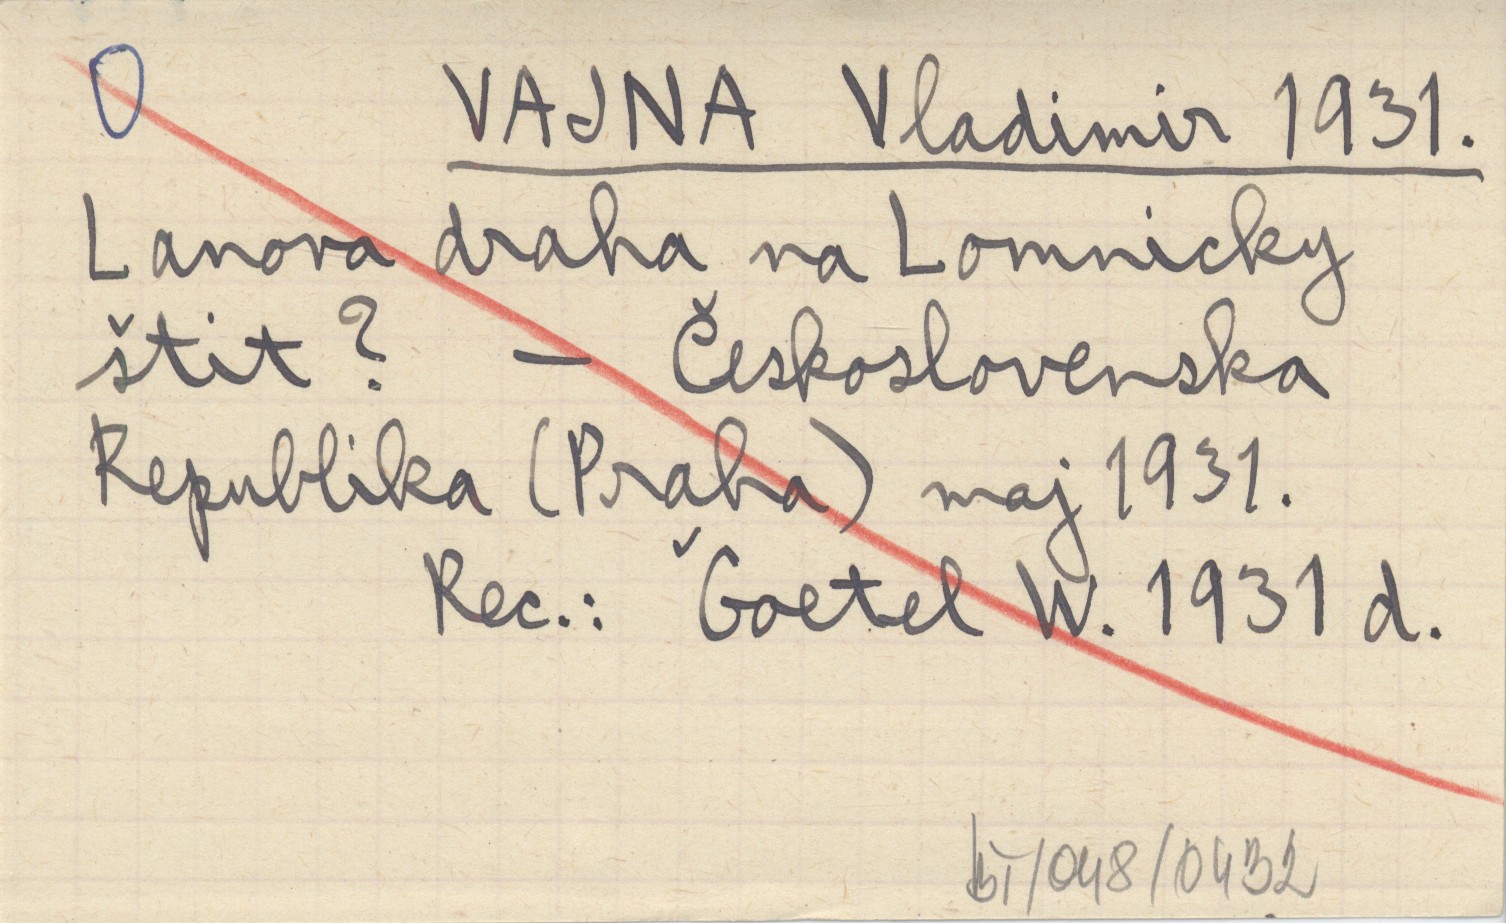 0 VAJNA Vladimir 1931.
Lanova draha na Lomnicky
štit? — Československa
Republika (Praha) maj 1931.
Rec.: Goetel W. 1931 d.
/048/0432